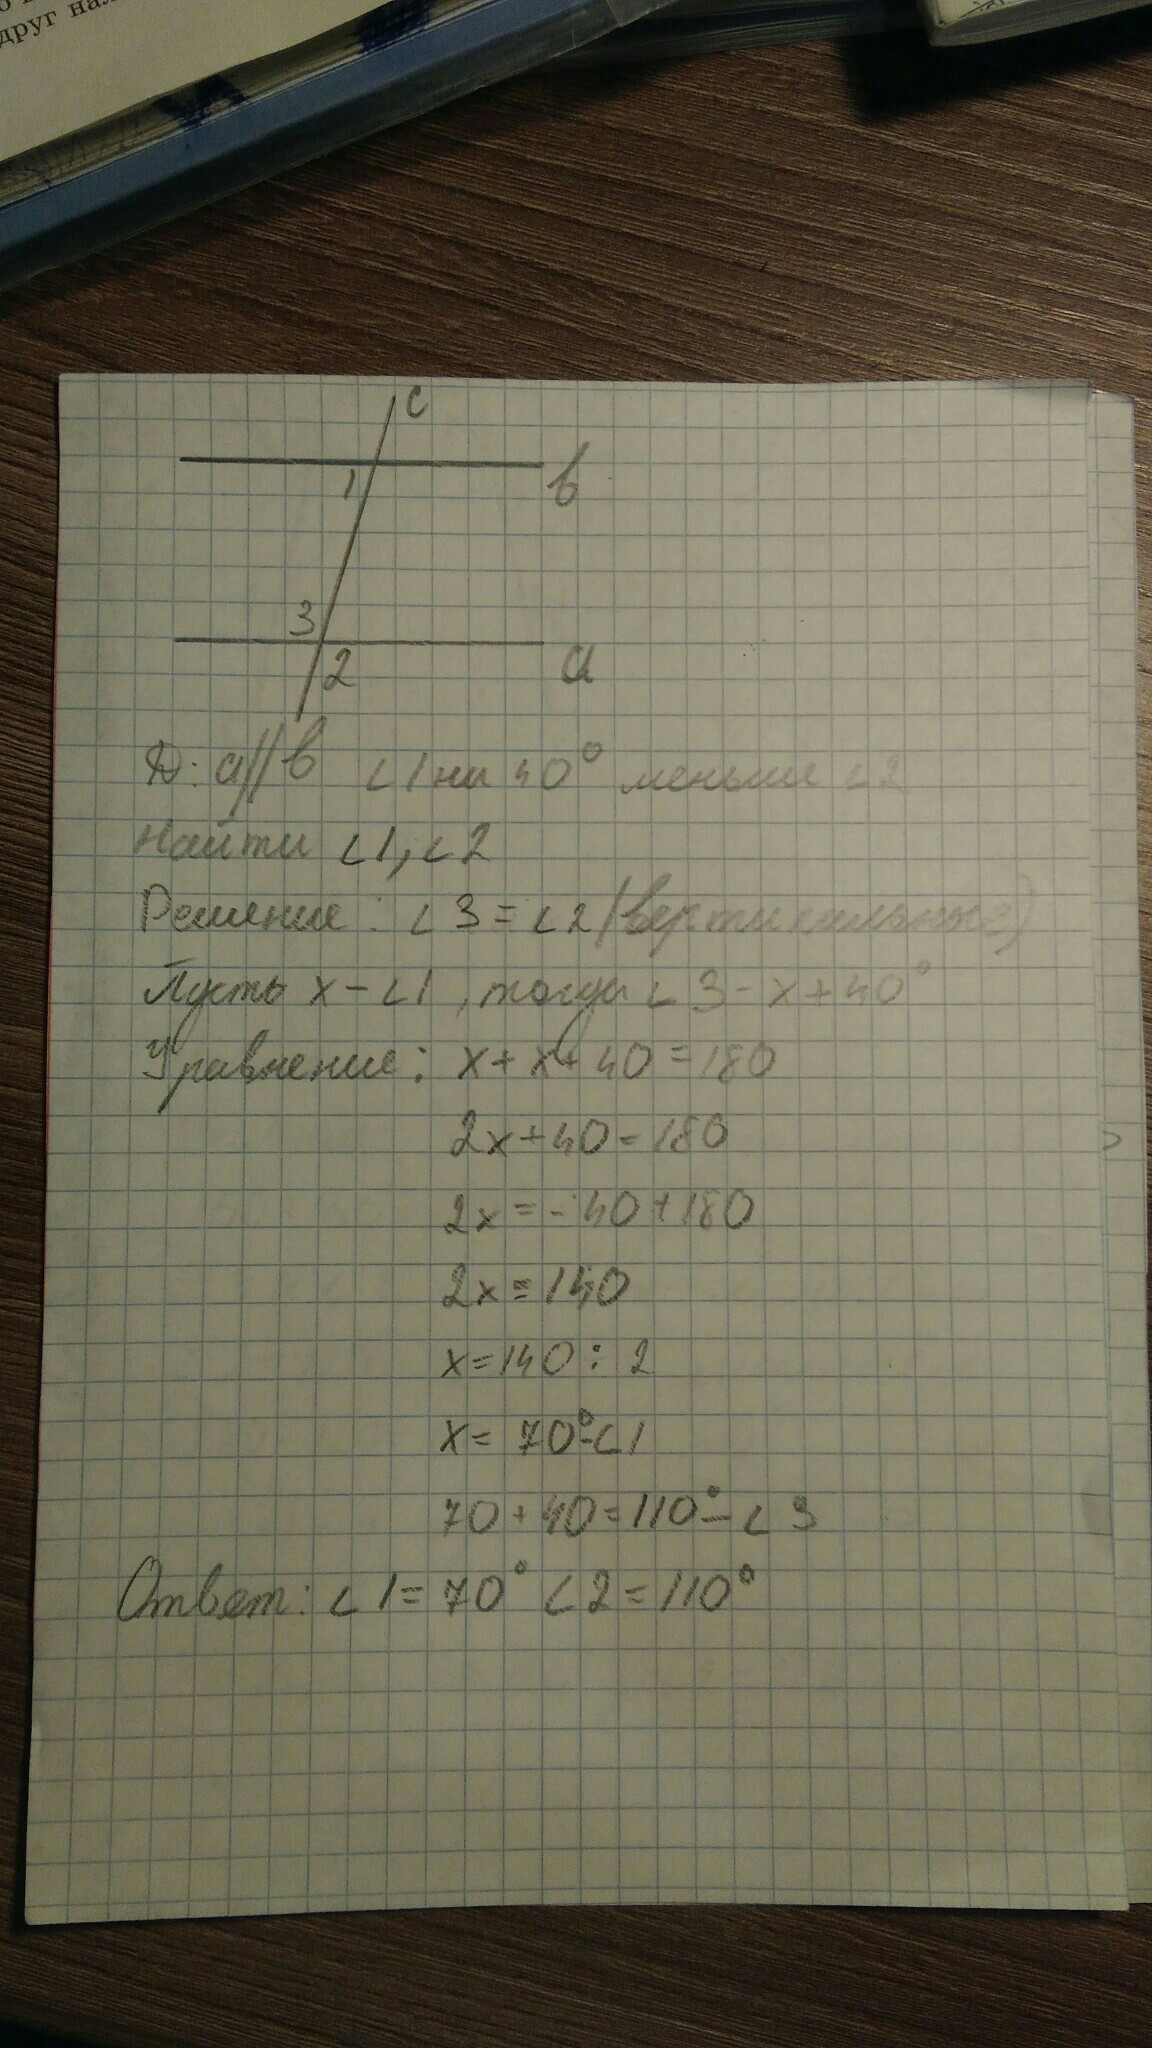 друг нал
c
1 b
3
2 a
Д: a//b ∠1 на 40° меньше ∠2
Найти ∠1, ∠2
Решение: ∠3 = ∠2 (вертикальные)
Пусть x - ∠1, тогда ∠3 - x + 40°
Уравнение: x + x + 40 = 180
2x + 40 = 180
2x = - 40 + 180
2x = 140
x = 140 : 2
x = 70° - ∠1
70 + 40 = 110° - ∠3
Ответ: ∠1 = 70° ∠2 = 110°